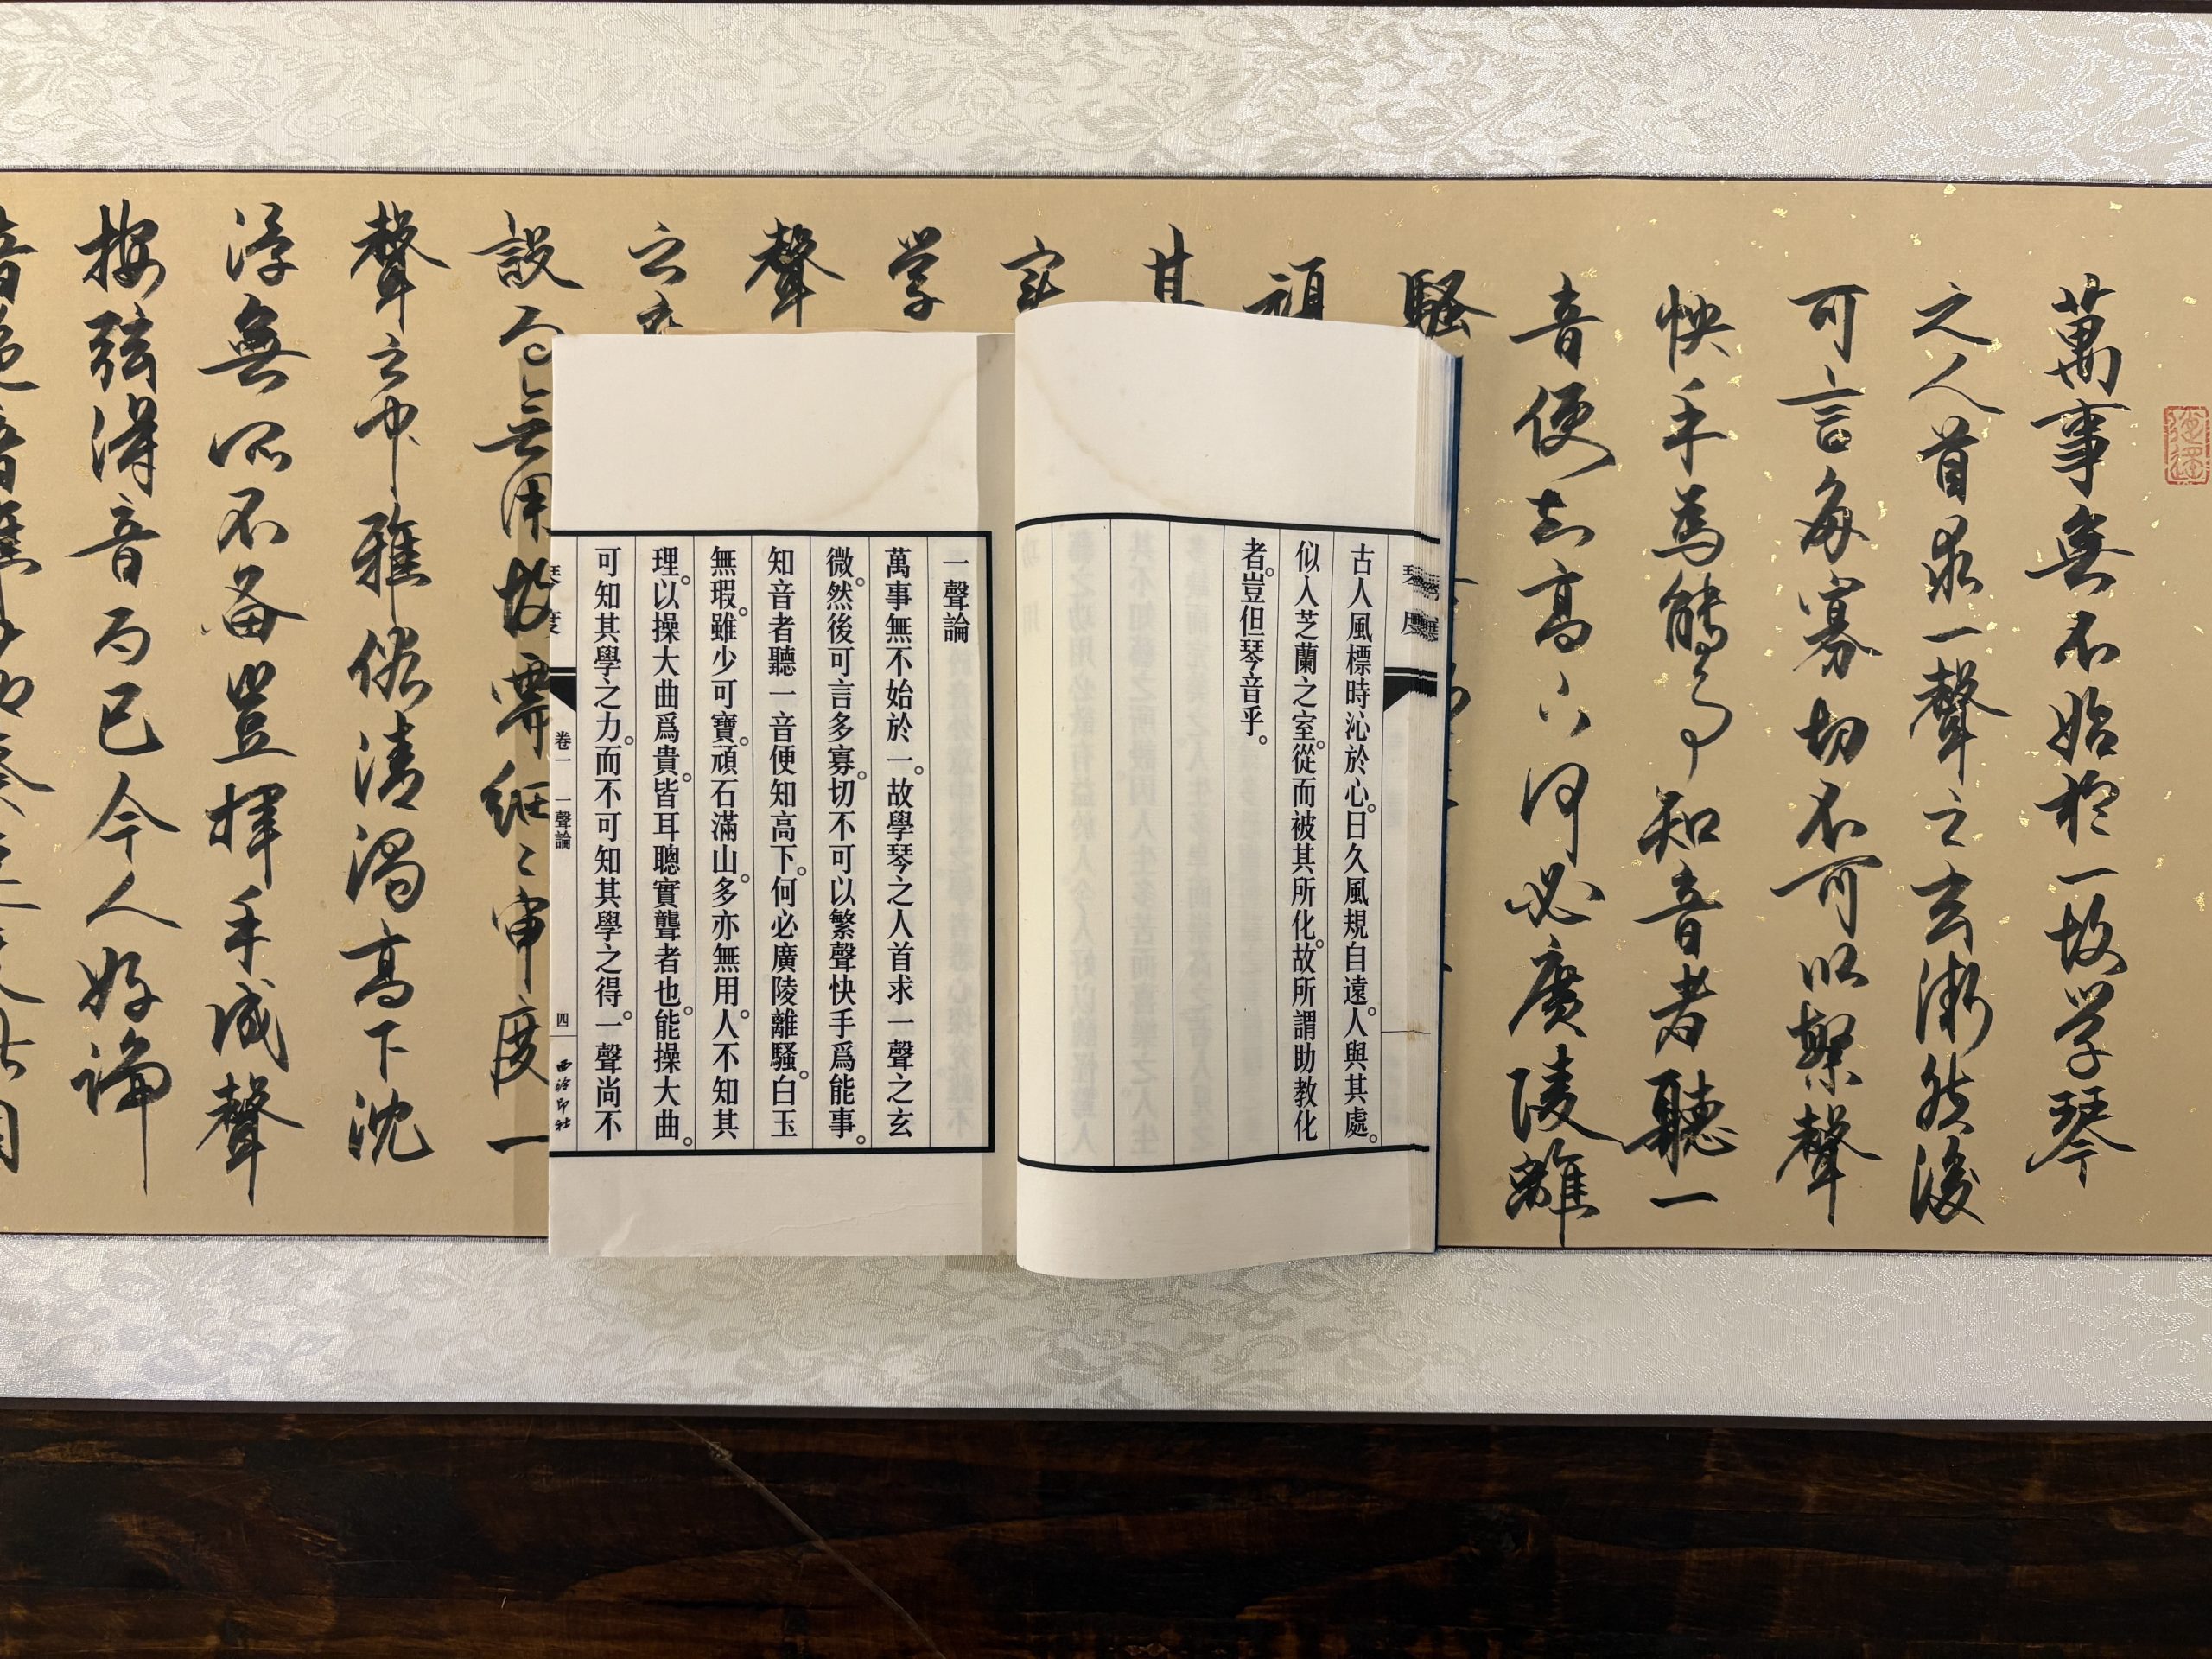 萬事無不始於一故学琴
之人首求一聲之玄微然後
可言多寡切不可以繁聲
快手為能事知音者聽一
音便知高下何必廣陵離
騷
頑
其
学
聲
之
設
聲之中雅俗清濁高下沈
浮無所不备豈揮手成聲
按弦得音而已今人好論
古人風標時沁於心。日久風規自遠。人與其處。
似入芝蘭之室。從而被其所化。故所謂助教化
者。豈但琴音乎。
一聲論
萬事無不始於一。故學琴之人首求一聲之玄
微。然後可言多寡。切不可以繁聲快手爲能事。
知音者聽一音便知高下。何必廣陵離騷。白玉
無瑕。雖少可寶。頑石滿山。多亦無用。人不知其
理。以操大曲爲貴。皆耳聰實聾者也。能操大曲。
可知其學之力。而不可知其學之得。一聲尚不
卷一 一聲論 四 西泠印社